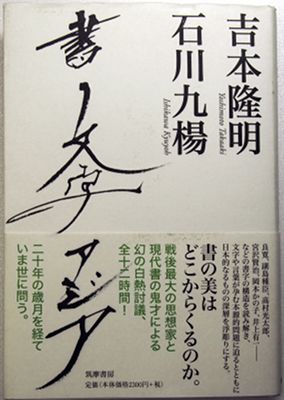 吉本隆明
Yoshimoto Takaaki
石川九楊
Ishikawa Kyuyoh
書
文字
アジア
書の美は
どこからくるのか。
良寛、副島種臣、高村光太郎、
宮沢賢治、岡本かの子、井上有一――
などの書字の構造を読み解き、
文字や言葉が孕む本源的問題に迫るとともに
日本的なるものの深層を浮彫りにする。
戦後最大の思想家と
現代書の鬼才による
幻の白熱討議、
全十二時間！
二十年の歳月を経て
いま世に問う。
筑摩書房
定価（本体価格2300円＋税）